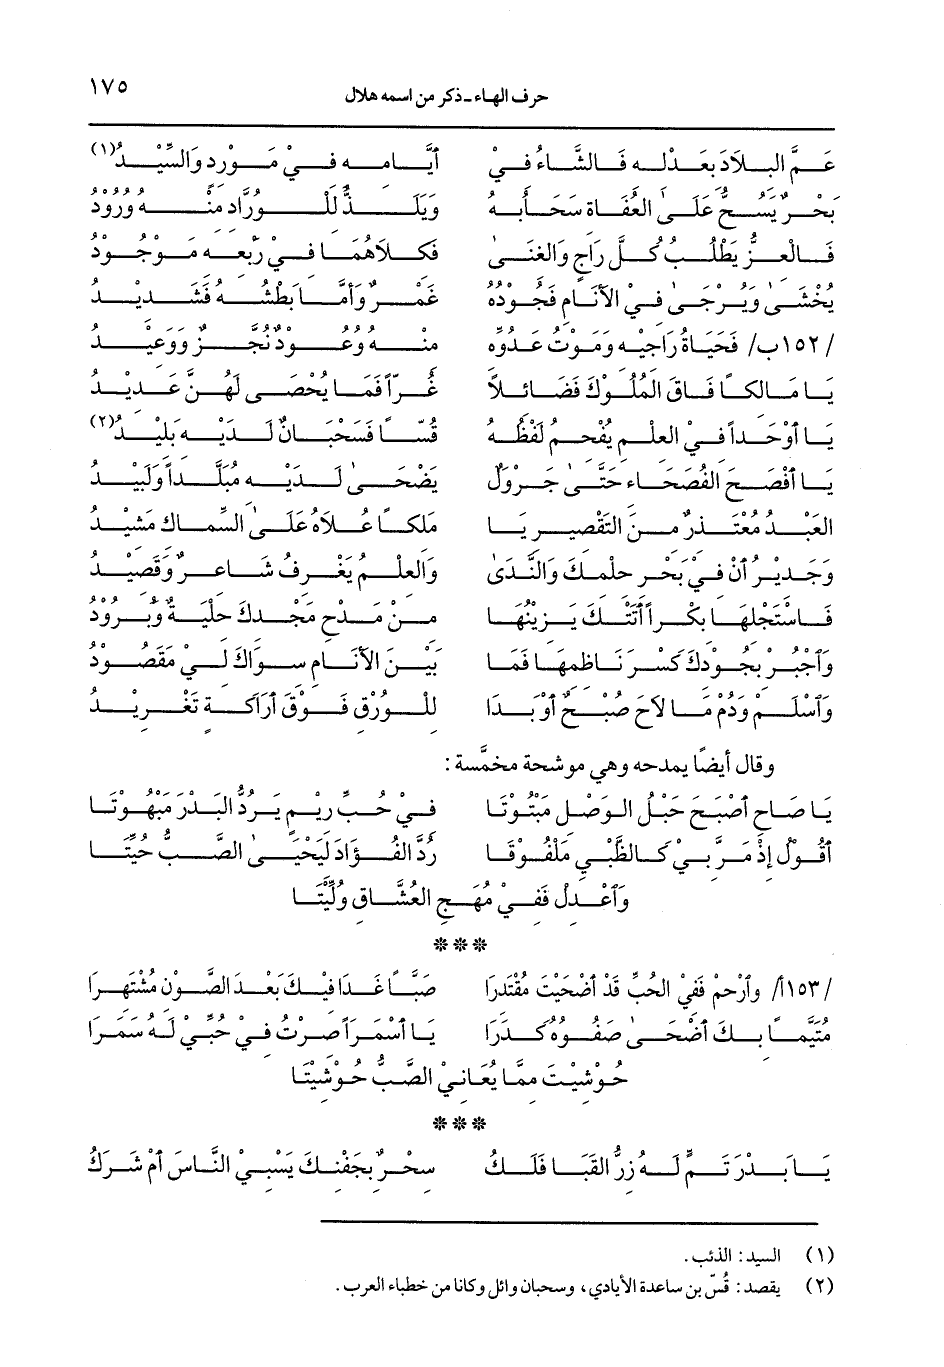 حرف الهاء ـ ذكر من اسمه هلال ١٧٥
عَمَّ البِلَادَ بعَدْلِه فَالشَّاءُ فيْ أيَّامِه فيْ مَوْرِدٍ وَالسِّيْدُ(١)
بَحْرٌ يَسُحُّ عَلَى العُفَاة سَحَابُهُ وَيَلَذُّ للْوُرَّادِ منْهُ وُرُوْدُ
فَالْعزُّ يَطْلُبُ كُلَّ رَاجٍ وَالغنَىٰ فَكلَاهُمَا فيْ رَبْعِه مَوْجُوْدُ
يُخْشَىٰ وَيُرْجَىٰ فيْ الأَنَامِ فَجُوْدُهُ غَمْرٌ وَأمَّا بَطْشُهُ فَشَديْدُ
/١٥٢ب/ فَحَيَاةُ رَاجيْه وَمَوْتُ عَدُوِّه منْهُ وُعُوْدٌ نُجَّزٌ وَوَعيْدُ
يَا مَالكًا فَاقَ المُلُوْكَ فَضَائلاً غُرّاً فَمَا يُحْصَى لَهُنَّ عَديْدُ
يَا أوْحَداً فيْ العلْمِ يُفْحمُ لَفْظُهُ قُسّاً فَسَحْبَانٌ لَدَيْه بَليْدُ(٢)
يَا أفْصَحَ الفُصَحَاء حَتَّىٰ جَرْوَلٌ يَضْحَىٰ لَدَيْه مُبَلَّداً وَلَبيْدُ
العَبْدُ مُعْتَذرٌ منَ التَقْصيْرِ يَا مَلكًا عُلاَهُ عَلَىٰ السِّمَاك مَشيْدُ
وَجَديْرٌ أنْ فيْ بَحْرِ حلْمكَ وَالنَّدَىٰ وَالعلْمِ يَغْرَقُ شَاعرٌ وَقَصيْدُ
فَاسْتَجْلهَا بكْراً أتَتْكَ يَزيْنُهَا منْ مَدْحِ مَجْدكَ حلْيَةٌ وَبُرُوْدُ
وَٱجْبُرْ بجُوْدكَ كَسْرَ نَاظمهَا فَمَا بَيْنَ الأَنَامِ سوَاكَ لي مَقْصُوْدُ
وَٱسْلَمْ وَدُمْ مَا لاَحَ صُبْحٌ أوْ بَدَا للْوُرْقِ فَوْقَ أرَاكَة تَغْريْدُ
وقال أيضًا يمدحه وهي موشحة مخمَّسة :
يَا صَاحِ أصْبَحَ حَبْلُ الوَصْلِ مَبْتُوْتَا فيْ حُبِّ ريْمٍ يَرُدُّ البَدْرَ مَبْهُوْتَا
أقُوْلُ إذْ مَرَّ بيْ كَالظَّبْيِ مَلْفُوْتَا رُدَّ الفُؤَادَ ليَحْيَىٰ الصَّبُّ حيْتَا
وَٱعْدلْ فَفيْ مُهَجِ العُشَّاقِ وُلِّيْتَا
***
/١٥٣أ/ وٱرْحمْ فَفيْ الحُبِّ قَدْ أضْحَيْتَ مُقْتَدرَا صَبًّا غَدَا فيْكَ بَعْدَ الصَّوْنِ مُشْتَهرَا
مُتيَّمًا بكَ أضْحَىٰ صَفْوُهُ كَدرَا يَا أسْمَراً صرْتُ فيْ حُبِّيْ لَهُ سَمَرَا
حُوْشيْتَ ممَّا يُعَانيْ الصَّبُّ حُوْشيْتَا
***
يَا بَدْرَ تَمٍّ لَهُ زرُّ القَبَا فَلَكُ سحْرٌ بجَفْنكَ يَسْبيْ النَّاسَ أمْ شَرَكُ
(١) السيد : الذئب .
(٢) يقصد : قُسّ بن ساعدة الأيادي ، وسحبان وائل وكانا من خطباء العرب .